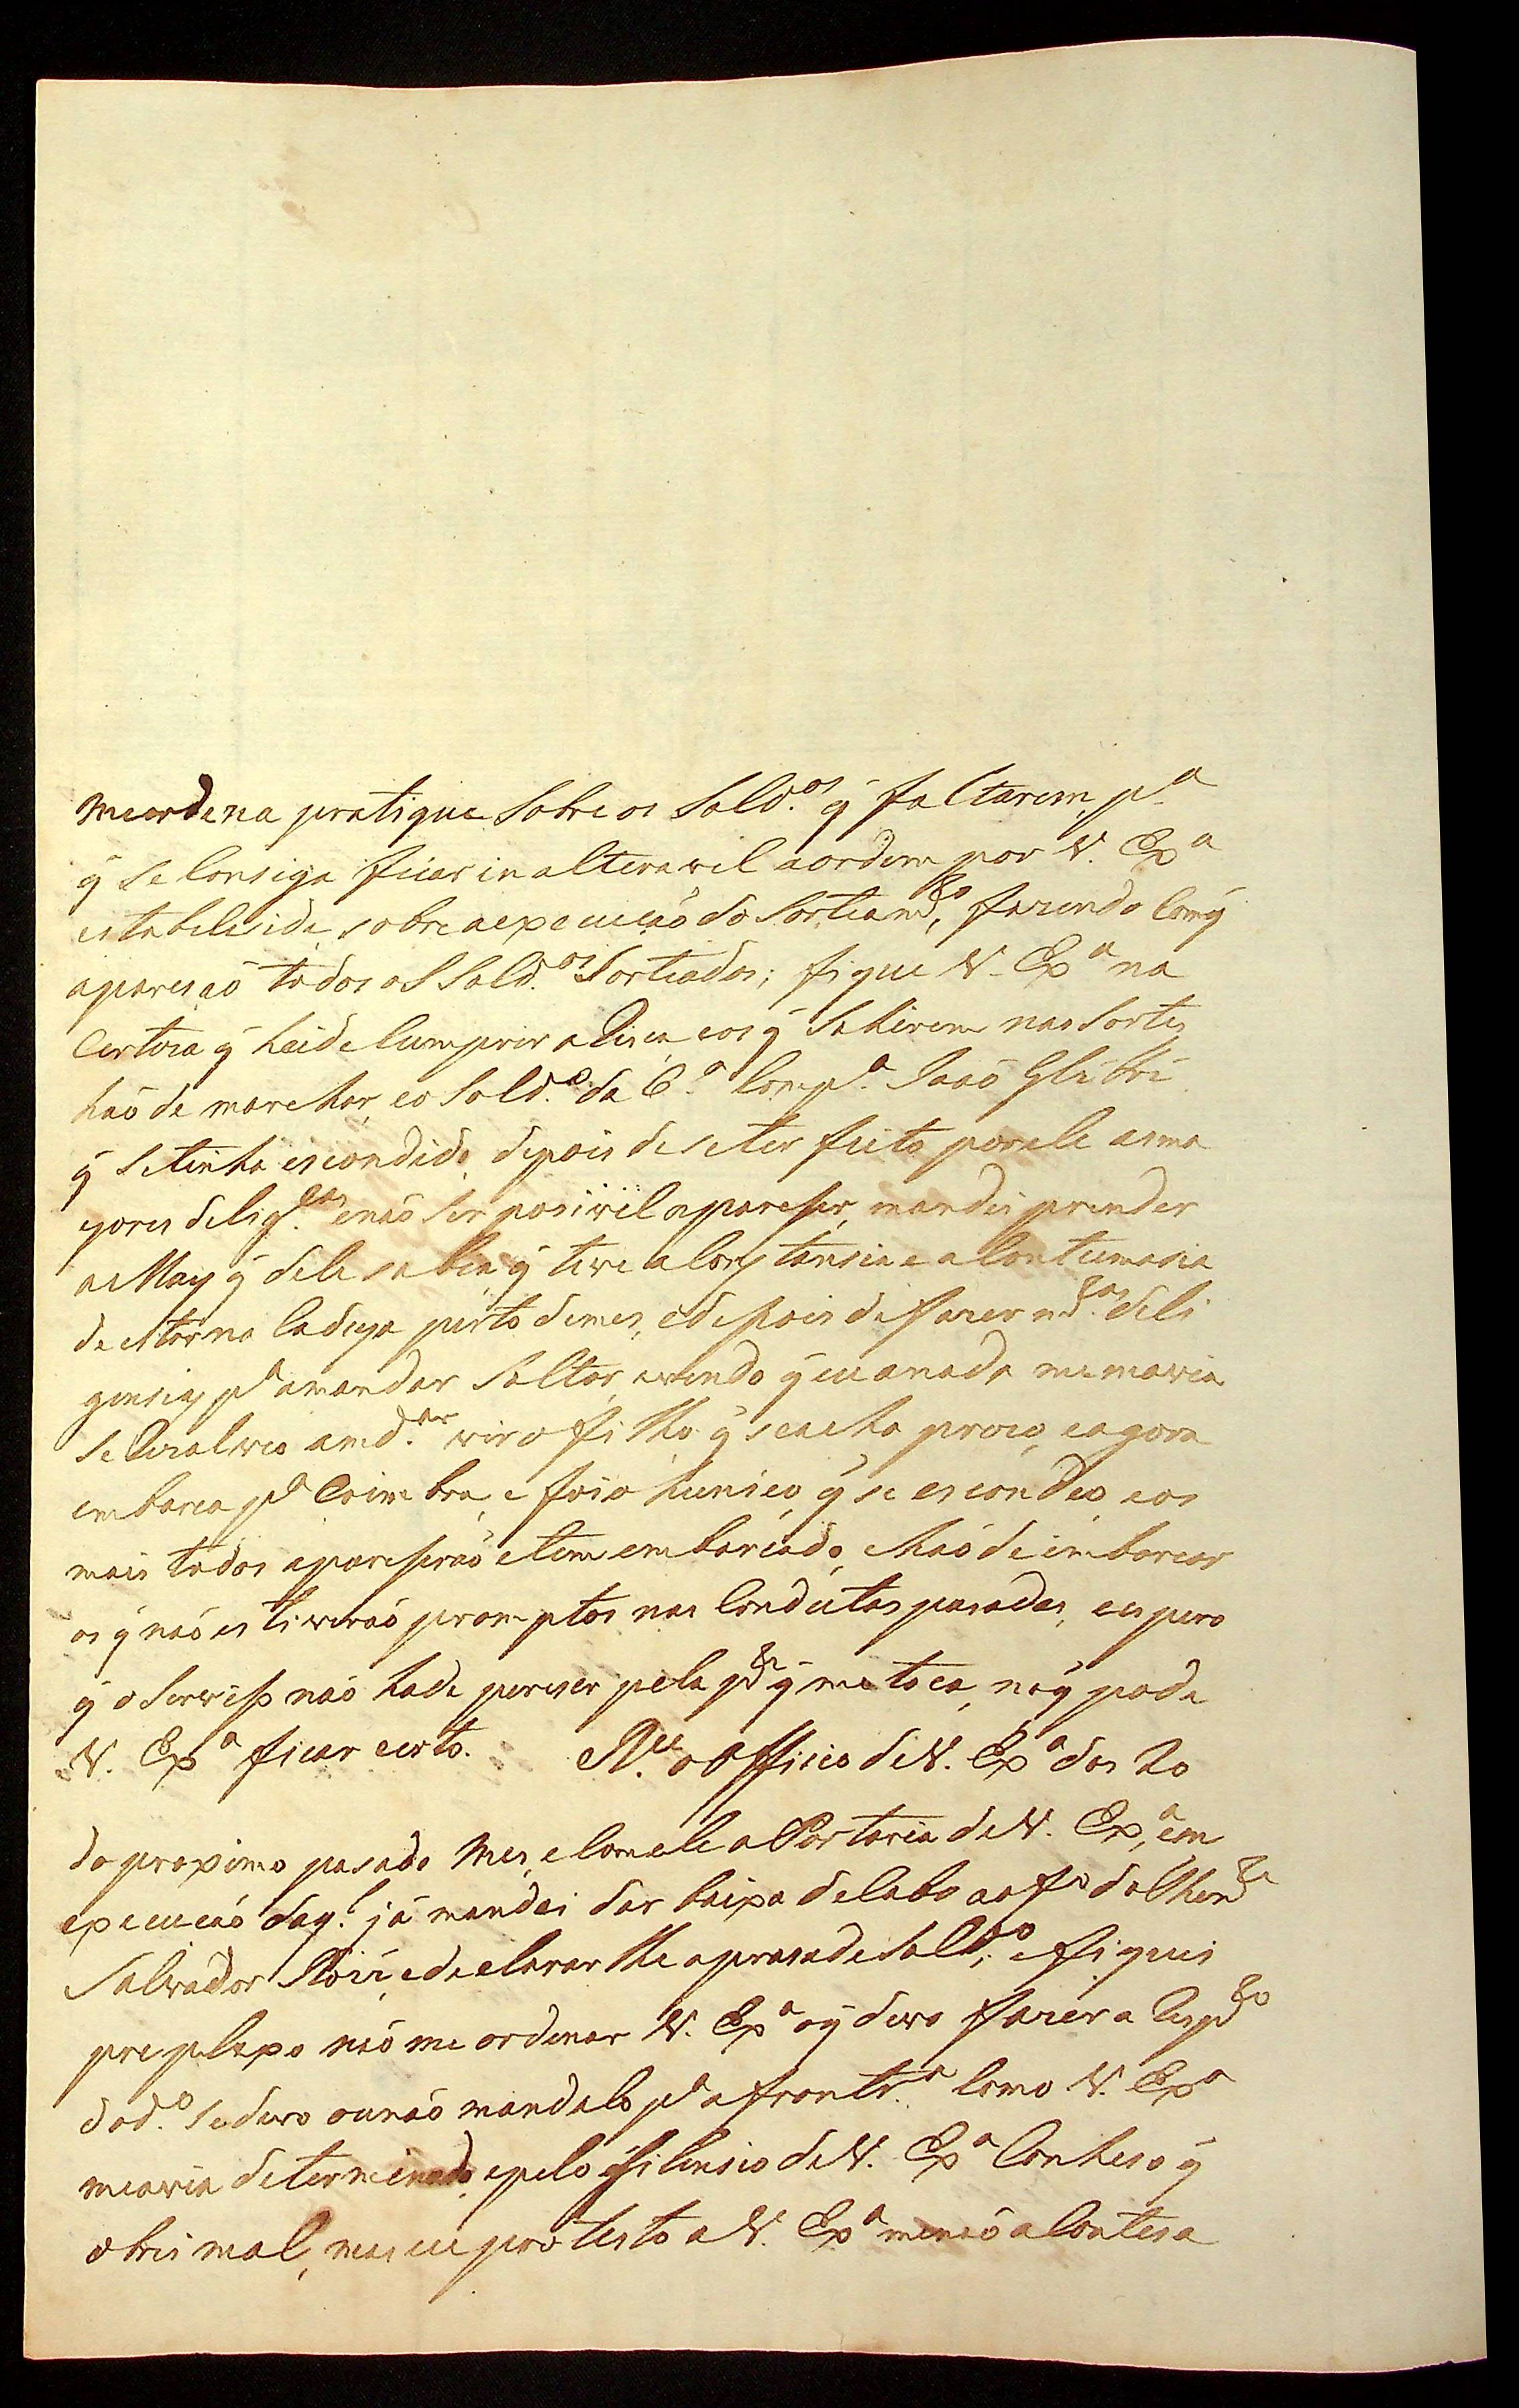 meordena pratique Sobre os Sold.os q̃ faltarem, p.a
q̃ se Consiga ficar inalteravel aordem por V. Exa
estabelesida, sobre aexecucaó do Sorteamto, fazendo Comq̃
aparesaó todos os Sold.os Sorteados; fique V. Exa na
Certeza q̃ heide Cumprir a Risca, eos q̃ Sahirem nas Sortes
haó de marchar, eo Sold.o da 6.a Comp.a Joaó
q̃ setinha escondido, depois de seter feito porele asma
yores delig.cas enaó ser posivel apareser, mandei prender
a May q̃ dele sabia q̃ teve a Constansia e a Contumasia
de estar na Cadeya perto demes, edepois defazer m.tas deli
gensias p.a amandar Soltar, evendo q̃ eu anada me movia
se Rezolveo amd.ar vir o filho q̃ seacha prezo, eagora
embarca p.a Coimbra, e foi o hunico q̃ se escondeo, eos
mais todos apareseraó etem embarcado, ehaó de embarcar
os q̃ naó estiveraó promptos nas Condutas pasadas, espero
q̃ o Serviso naó hade pereser pela pte q̃ me toca, noq̃ pode
V. Exa ficar certo. R.ce o Officio de V. Exa dos 20
do proximo pasado Mes, e Comele a Portaria de V. Exa, em
execucaó daq.l já mandei dar baixa de Cabo ao f.o do Thente
Salvador , edeclararlhe aprasa de Sold.o, e fiquei
preplexo naó me ordenar V. Exa oq̃ devo fazer a Respto
dod.o sedevo ounaó mandalo p.a afrontr.a Como V. Exa
meavia determinado, epelo Silensio de V. Exa Conheso q̃
obrei mal, mas eu protesto a V. Exa menaó aContesa